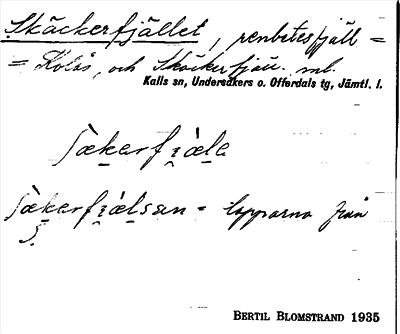 Skäckerfjället, renbetesfjäll =
= Kolås, och Skäckerfjäll. ml.
Kalls sn, Undersåkers o. Offerdals tg, Jämtl. l.
ʃækerfi̯æle
ʃækerfi̯ælsan = lapparna från
S.
BERTIL BLOMSTRAND 1935